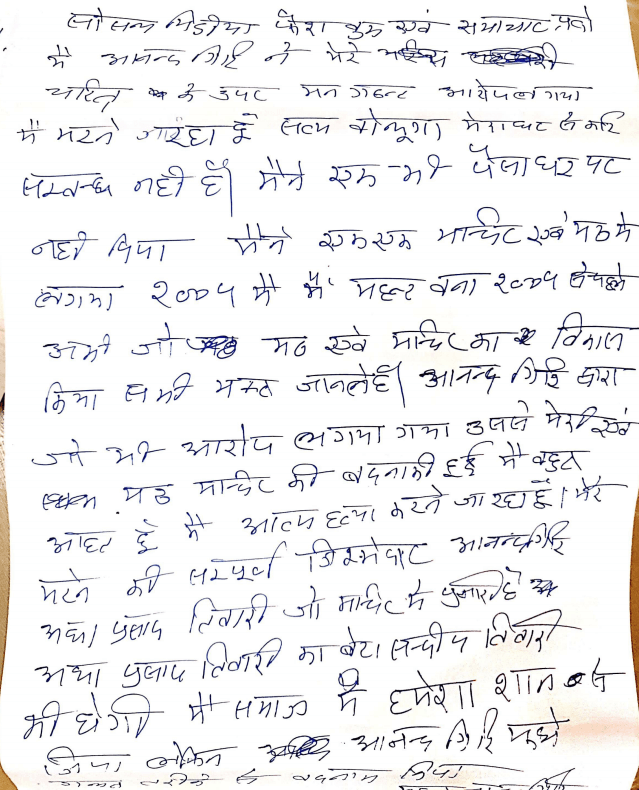 सोसल मिडीया फेश बुक एवं समाचार पत्रो
मै आनन्द गिरि ने मेरे
चरित्र के उपर मन गढन्ट आरोप लगाया
मैं मरने जा रहा हूँ सत्य बोलूगा मेरा घर से कोई
सम्बन्ध नही है| मैने एक भी पैसा घर पर
नही दिया मैने एक एक मन्दिर एवं मठ मे
लगाया २००४ मै मैं महन्त बना २००४ से पहले
अभी जो मठ एवं मन्दिर का विकास
किया सभी भक्त जानते है| आनन्द गिरि द्वारा
जो भी आरोप लगाया गया उससे मेरी एवं
मठ मन्दिर की बदनामी हुई मै बहुत
आहत हूँ मै आत्म हत्या करने जा रहा हूँ। मेरे
मरने की सम्पूर्ण जिम्मेवार आनन्द गिरि
अद्या प्रसाद तिवारी जो मन्दिर मे पुजारी है
अद्या प्रसाद तिवारी का बेटा सन्दीप तिवारी
की होगी मै समाज मै हमेशा शान से
जिया लेकिन आनन्द गिरि मुझे
गलत तरीके से बदनाम किया